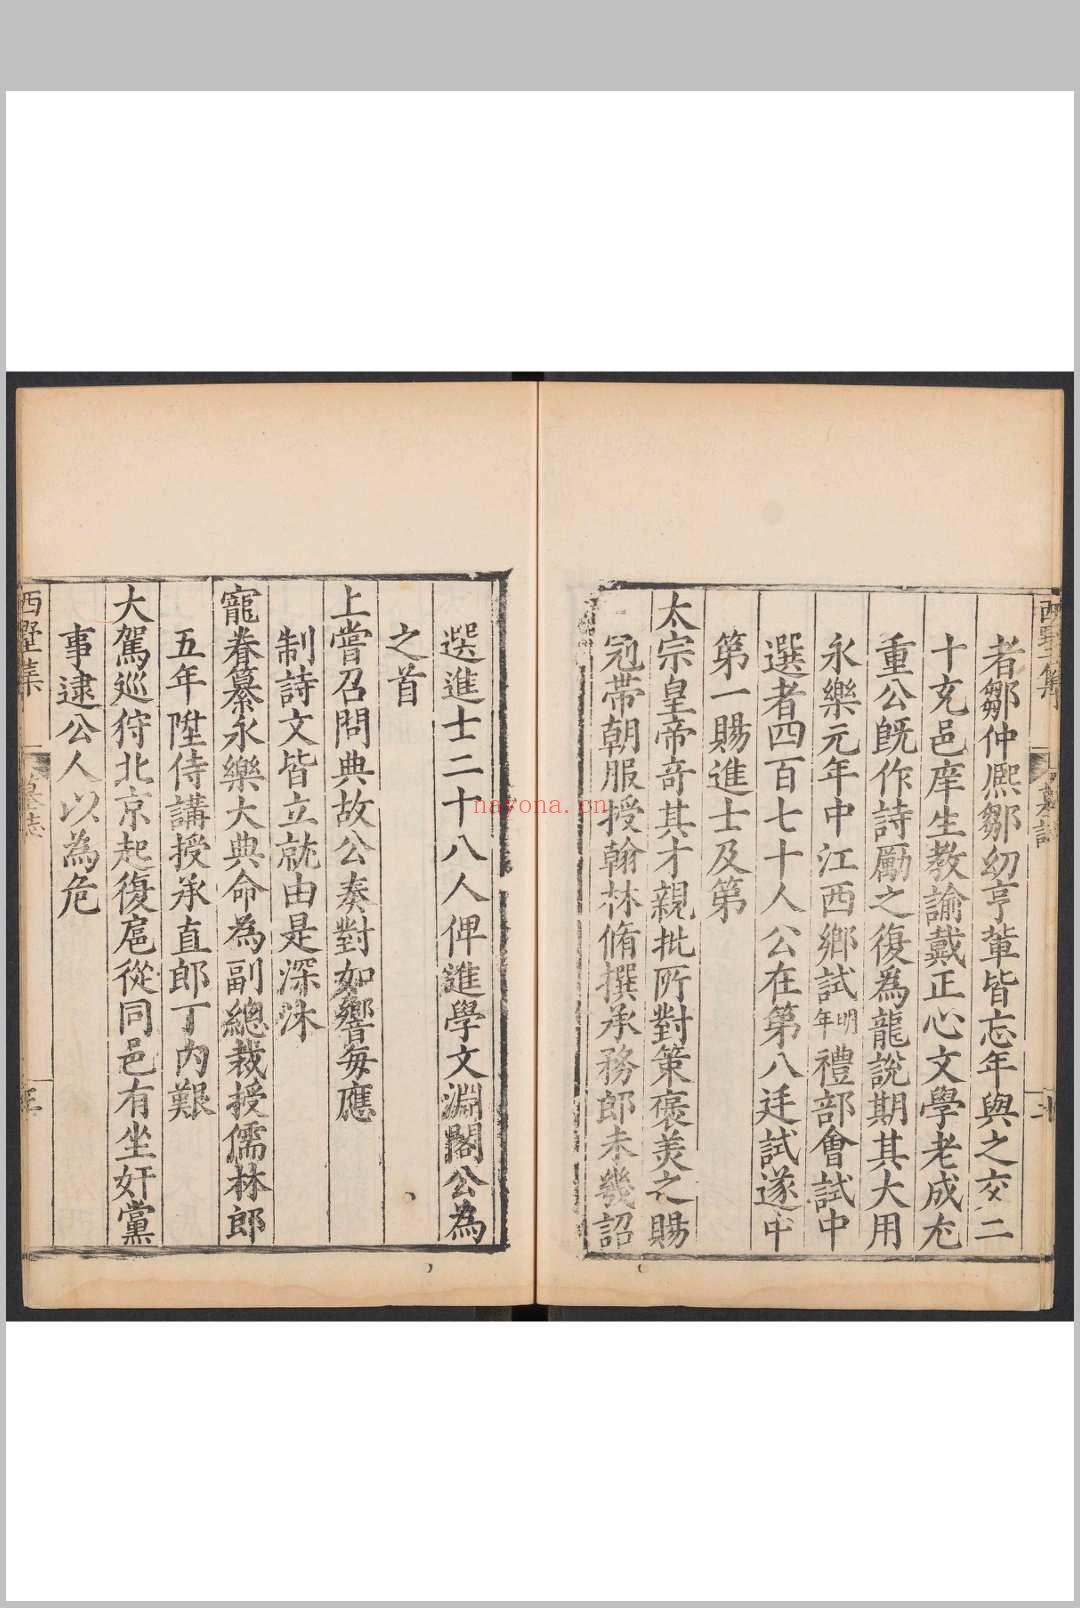 者鄒仲熈鄒幼亨軰皆忘年與之交二
十充邑庠生教諭戴正心文學老成尤
重公旣作詩勵之復為龍說期其大用
永樂元年中江西鄉試明年禮部會試中
選者四百七十人公在第八廷試遂中
第一賜進士及第
太宗皇帝竒其才親批所對策褒羙之賜
冠帶朝服授翰林脩撰承務郎未幾詔
選進士二十八人俾進學文淵閣公為
之首
上嘗召問典故公奏對如響每應
制詩文皆立就由是深沐
寵眷纂永樂大典命為副總裁授儒林郎
五年陞侍講授承直郎丁內艱
大駕巡狩北京起復扈從同邑有坐奸黨
事逮公人以為危
西墅集
墓誌
nayona.cn